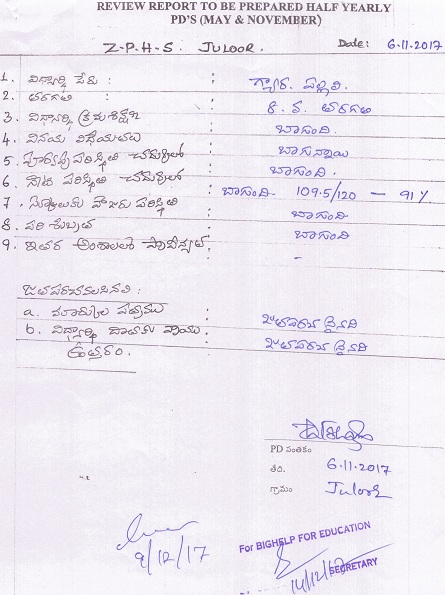 REVIEW REPORT TO BE PREPARED HALF YEARLY
PD'S (MAY & NOVEMBER)
Z-P-H-S. JULOOR. Date: 6-11-2017
1. విద్యార్థి పేరు : గ్యార. పల్లవి.
2. తరగతి : 8. వ. తరగతి
3. విద్యార్థి క్రమశిక్షణ : బాగుంది.
4. వినయ విధేయతలు : బాగున్నాయి
5. పరిస్థితి చదువులో : బాగుంది.
6. పరిస్థితి చదువులో : బాగుంది. 109.5/120 - 91%
7. స్కూలుకు హాజరు పరిస్థితి : బాగుంది
8. పరిశుభ్రత : బాగుంది
9. ఇతర అంశాలలో : -
జతపరచవలసినవి :
a. మార్కుల పత్రము : జతపరచ బైనది
b. విద్యార్థి దాతకు వ్రాయు : జతపరచ బైనది
ఉత్తరం.
PD సంతకం
తేది. 6-11-2017
గ్రామం Juloor
9/12/17
For BIGHELP FOR EDUCATION
14/12/17 SECRETARY